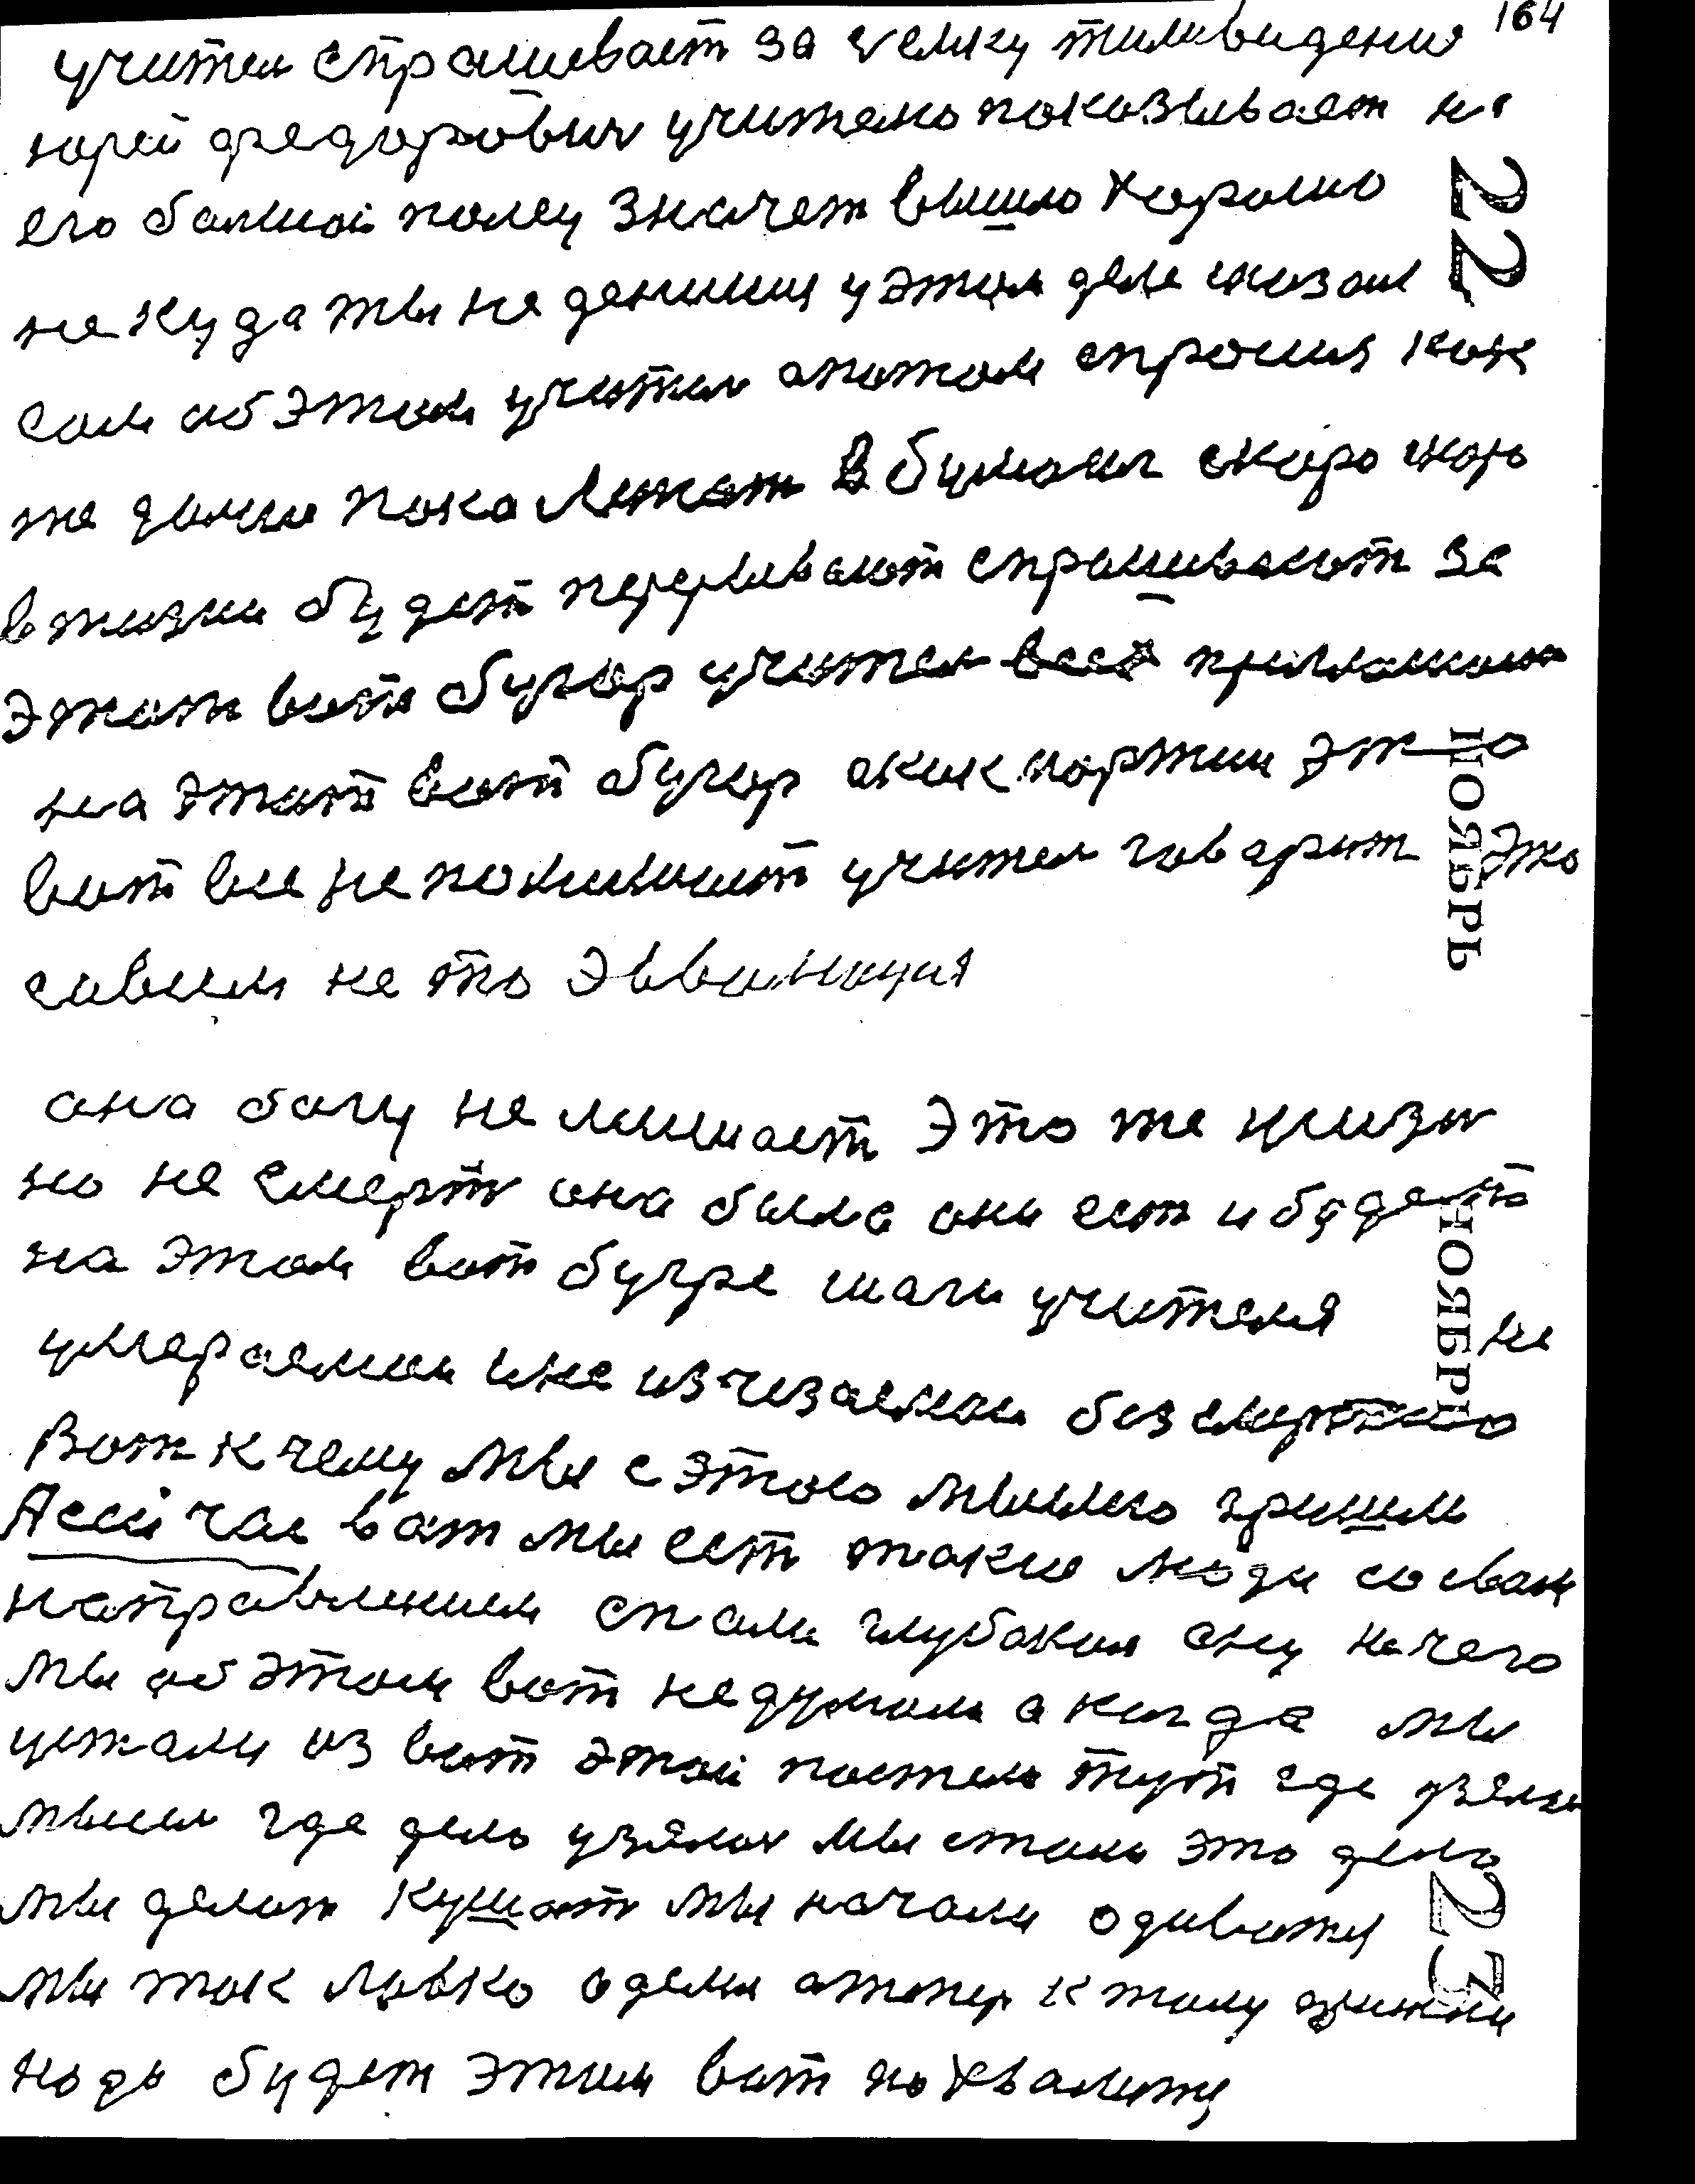 164
учител спрашивает за челку тиливидению
юрей федорович учителю показывает на
его балной полец значет вышло хорошо
не куда ты не денишся у этом деле сказал
сам об этом учител а потом спрошия как
же далше пока лежат в бумаги скоро скоро
в жизни будет перерывают спрашивают за
этот вот бугор учител всех приглашаит
на этот вот бугор а как портии это
вот все не понимают учител говарит это
савсим не то эвваконция
22
НОЯБРЬ
она богу не мишает это же жизн
но не смерт она была она ест и будет
на этом вот бугре шаги учителя не
умераемаи и не изчизаемаи безсмертно
Вот к чему мы с этою мыслю гришим
А сси час вот мы ест такие люди со сваим
направлением спали глубоким сну нечего
мы об этом вот не думали а когда мы
устали из вот этой постели тут где узялис
мысли где дело узялос мы стали это дело
мы делат кушат мы начали одиватся
мы так ловко одели а типер к таму
надо будет этим вот похвалится
НОЯБРЬ
23